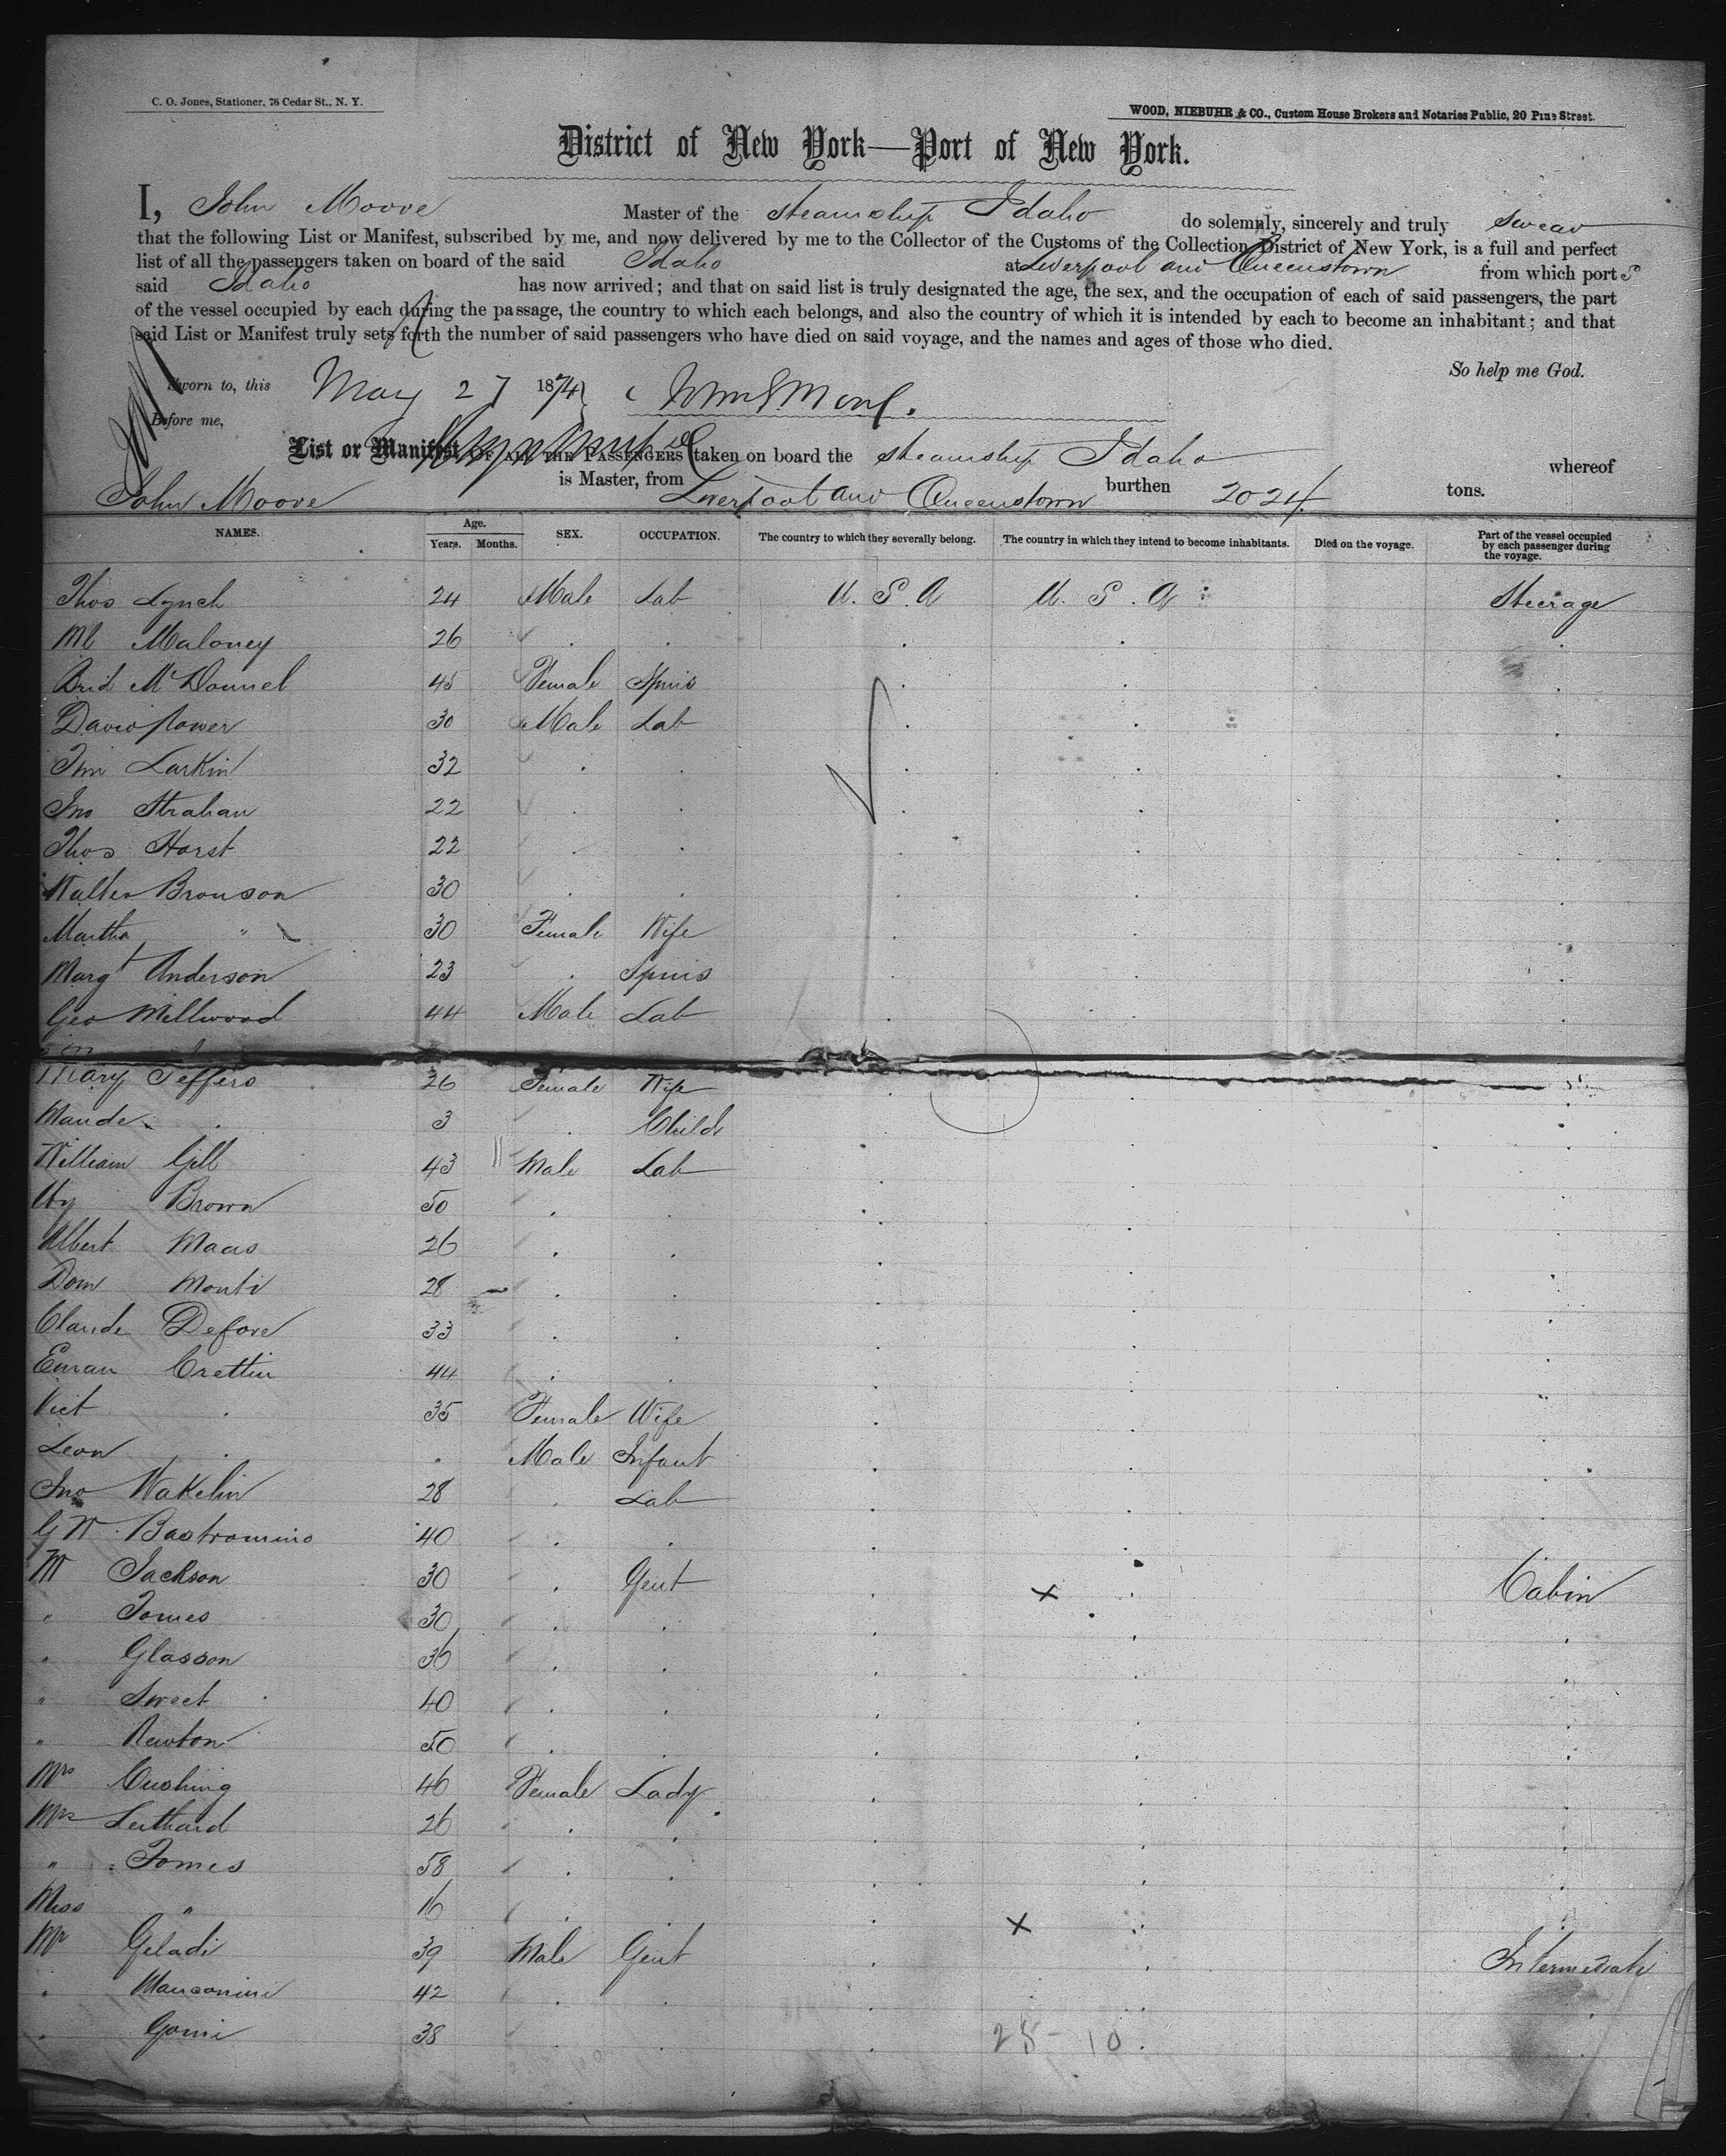 C. O. Jones, Stationer, 76 Cedar St., N. Y.
WOOD, NIEBUHR & CO., Custom House Brokers and Notaries Public, 20 Pine Street.
District of New York—Port of New York.
I, John Moore Master of the steamship Idaho do solemnly, sincerely and truly swear
that the following List or Manifest, subscribed by me, and now delivered by me to the Collector of the Customs of the Collection District of New York, is a full and perfect
list of all the passengers taken on board of the said Idaho at Liverpool and Queenstown from which port s
said Idaho has now arrived; and that on said list is truly designated the age, the sex, and the occupation of each of said passengers, the part
of the vessel occupied by each during the passage, the country to which each belongs, and also the country of which it is intended by each to become an inhabitant; and that
said List or Manifest truly sets forth the number of said passengers who have died on said voyage, and the names and ages of those who died.
So help me God.
Sworn to, this May 27 1874
Before me,
List or Manifest OF ALL THE PASSENGERS taken on board the steamship Idaho whereof
John Moore is Master, from Liverpool and Queenstown burthen 2024 tons.
NAMES. Age. Years. Months. SEX. OCCUPATION. The country to which they severally belong. The country in which they intend to become inhabitants. Died on the voyage. Part of the vessel occupied by each passenger during the voyage.
Thos Lynch 24 Male Lab U. S. A U. S. A Steerage
Ml Maloney 26
Brid McDonnel 45 Female Spins
David Power 30 Male Lab
Tim Larkin 32
Jno Strahan 22
Thos Horst 22
Walter Bronson 30
Martha " 30 Female Wife
Margt Anderson 23 Spins
Geo Millwood 44 Male Lab
Mary Jeffers 26 Female Wife
Maude 3 Child
William Gill 43 Male Lab
Hy Brown 50
Albert Maas 26
Dom Monti 28
Claude Defore 33
Crettin 44
Vict 35 Female Wife
Leon " Male Infant
Jno Wakelin 28 Lab
G W 40
Mr Jackson 30 Gent Cabin
" Tomes 30
" Glasson 36
" Sweet 40
" Newton 50
Mrs Cushing 46 Female Lady
Mrs Leithard 26
" Tomes 58
Miss " 16
Mr Geladi 39 Male Gent Intermediate
" Manconini 42
" Gomi 38
28 - 10